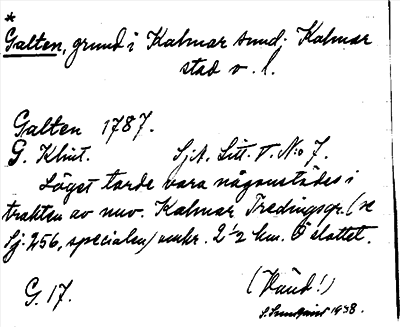 *
Galten, grund i Kalmar sund. Kalmar
stad o. l.
Galten 1787.
G. Klint. SjA. Litt. V. No 7.
Läget torde vara någonstädes i
trakten av nuv. Kalmar Tredingsgr. (se
Sj. 256, specialen) omkr. 2 1/2 km. Ö slottet.
G. 17. (Känd!)
1938.